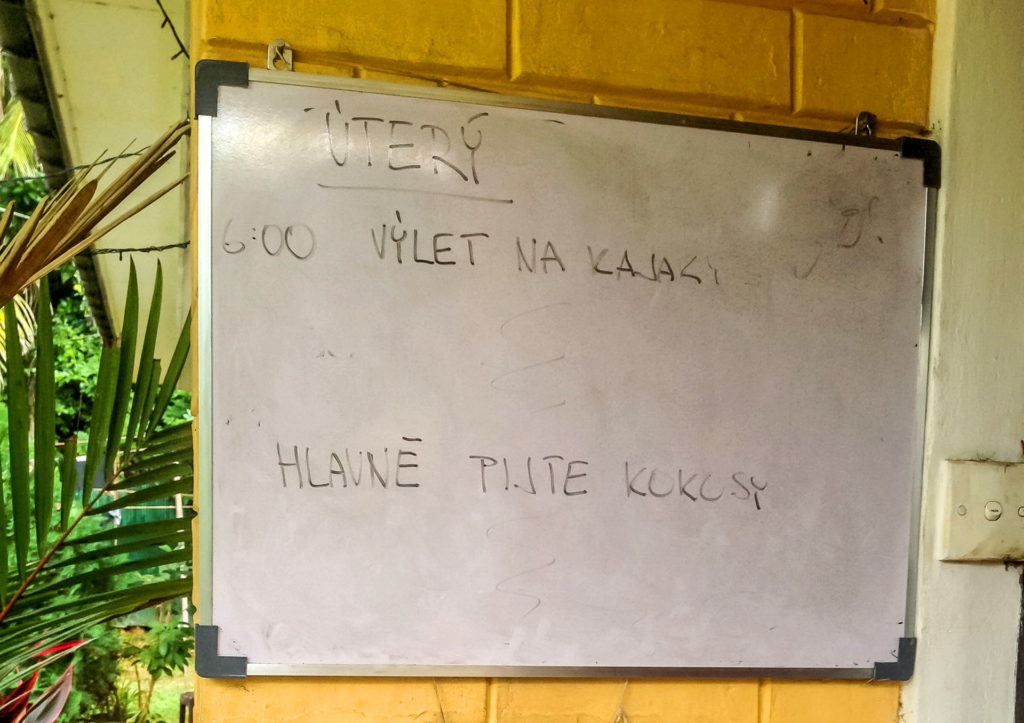 ÚTERÝ
6:00 VÝLET NA KAJAKY
HLAVNĚ PIJTE KOKOSY